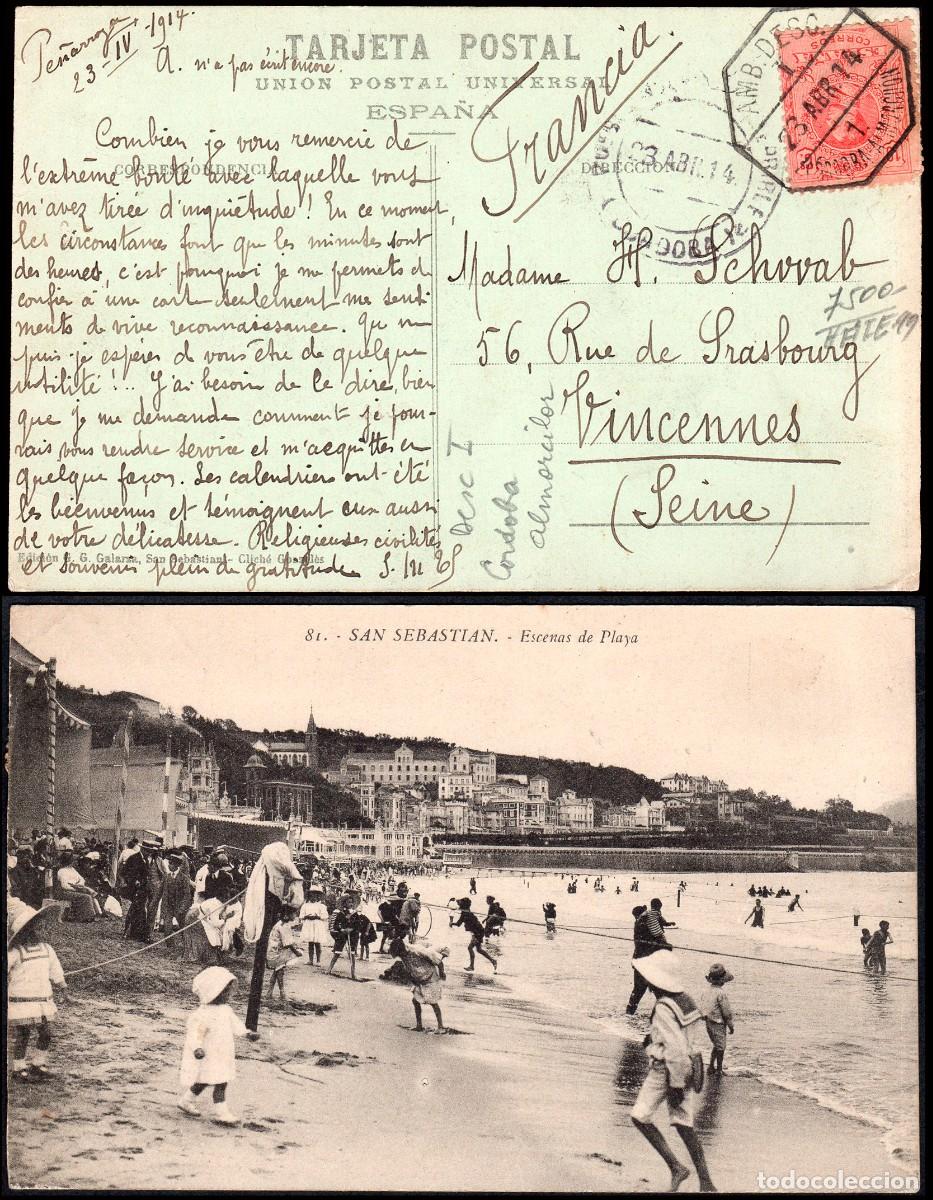 Peñarroya
23-IV-1914
A. n'a pas écrit encore.
TARJETA POSTAL
UNION POSTAL UNIVERSAL
ESPAÑA
CORRESPONDENCIA
DIRECCION
Francia.
Combien je vous remercie de
l'extrême bonté avec laquelle vous
m'avez tirée d'inquiétude! En ce moment,
les circonstances font que les minutes sont
des heures, c'est pourquoi je me permets de
confier à une carte seulement mes senti
ments de vive reconnaissance. Que ne
puis-je espérer de vous être de quelque
utilité!... J'ai besoin de le dire, bien
que je me demande comment je pour-
rais vous rendre service et m'acquitter en
quelque façon. Les calendriers ont été
les bienvenus et témoignent eux aussi
de votre délicatesse. Religieuses civilités
et souvenir plein de gratitude.
Edición G. G. Galarza, San Sebastian - Cliché
Madame H. Schwab
56, Rue de Srasbourg
Vincennes
(Seine)
AMB. DESC.
23 ABR 14
1.
CORREOS
23 ABR. 14
7500
Desc I
Cordoba
almorcilor
81. - SAN SEBASTIAN. - Escenas de Playa
todocoleccion